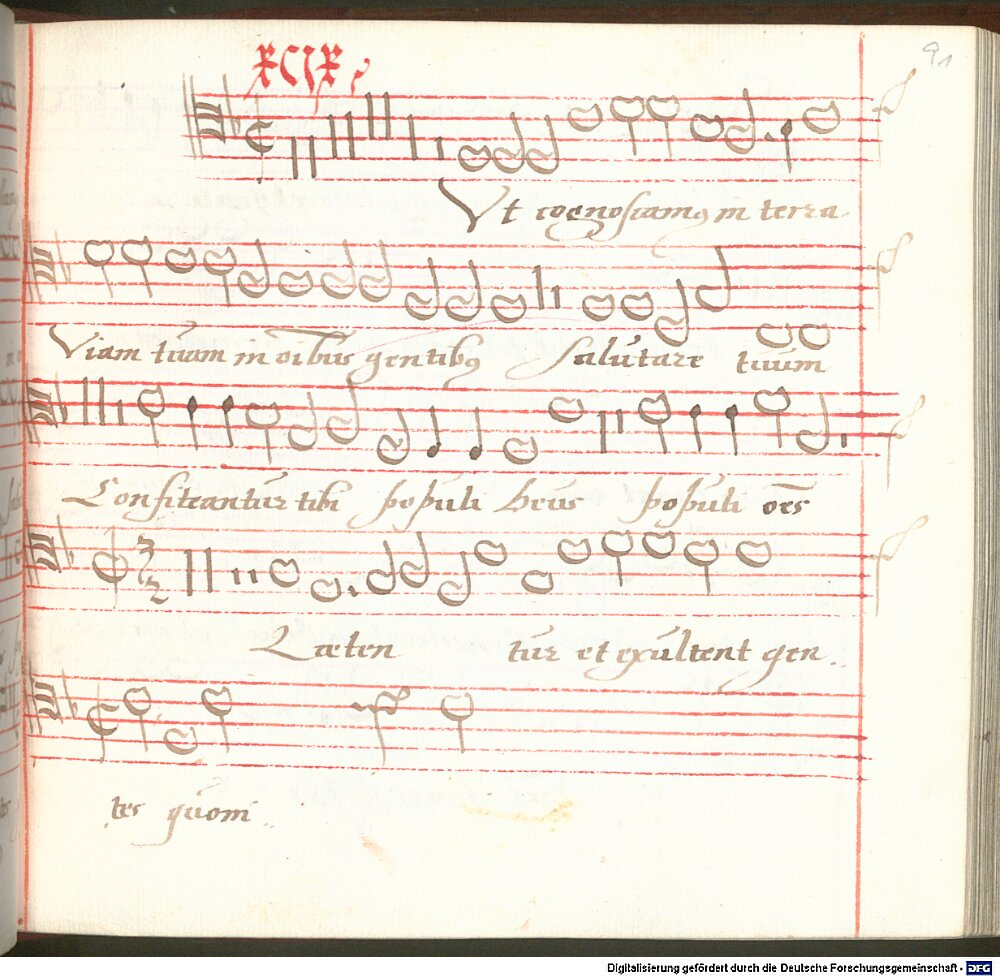 XCIX
91
Ut cognoscamus in terra
Viam tuam in oībus gentibus salutare tuum
Confiteantur tibi populi Deus populi oēs
3
2
Læten tur et exultent gen..
tes quoni..
Digitalisierung gefördert durch die Deutsche Forschungsgemeinschaft - DFG